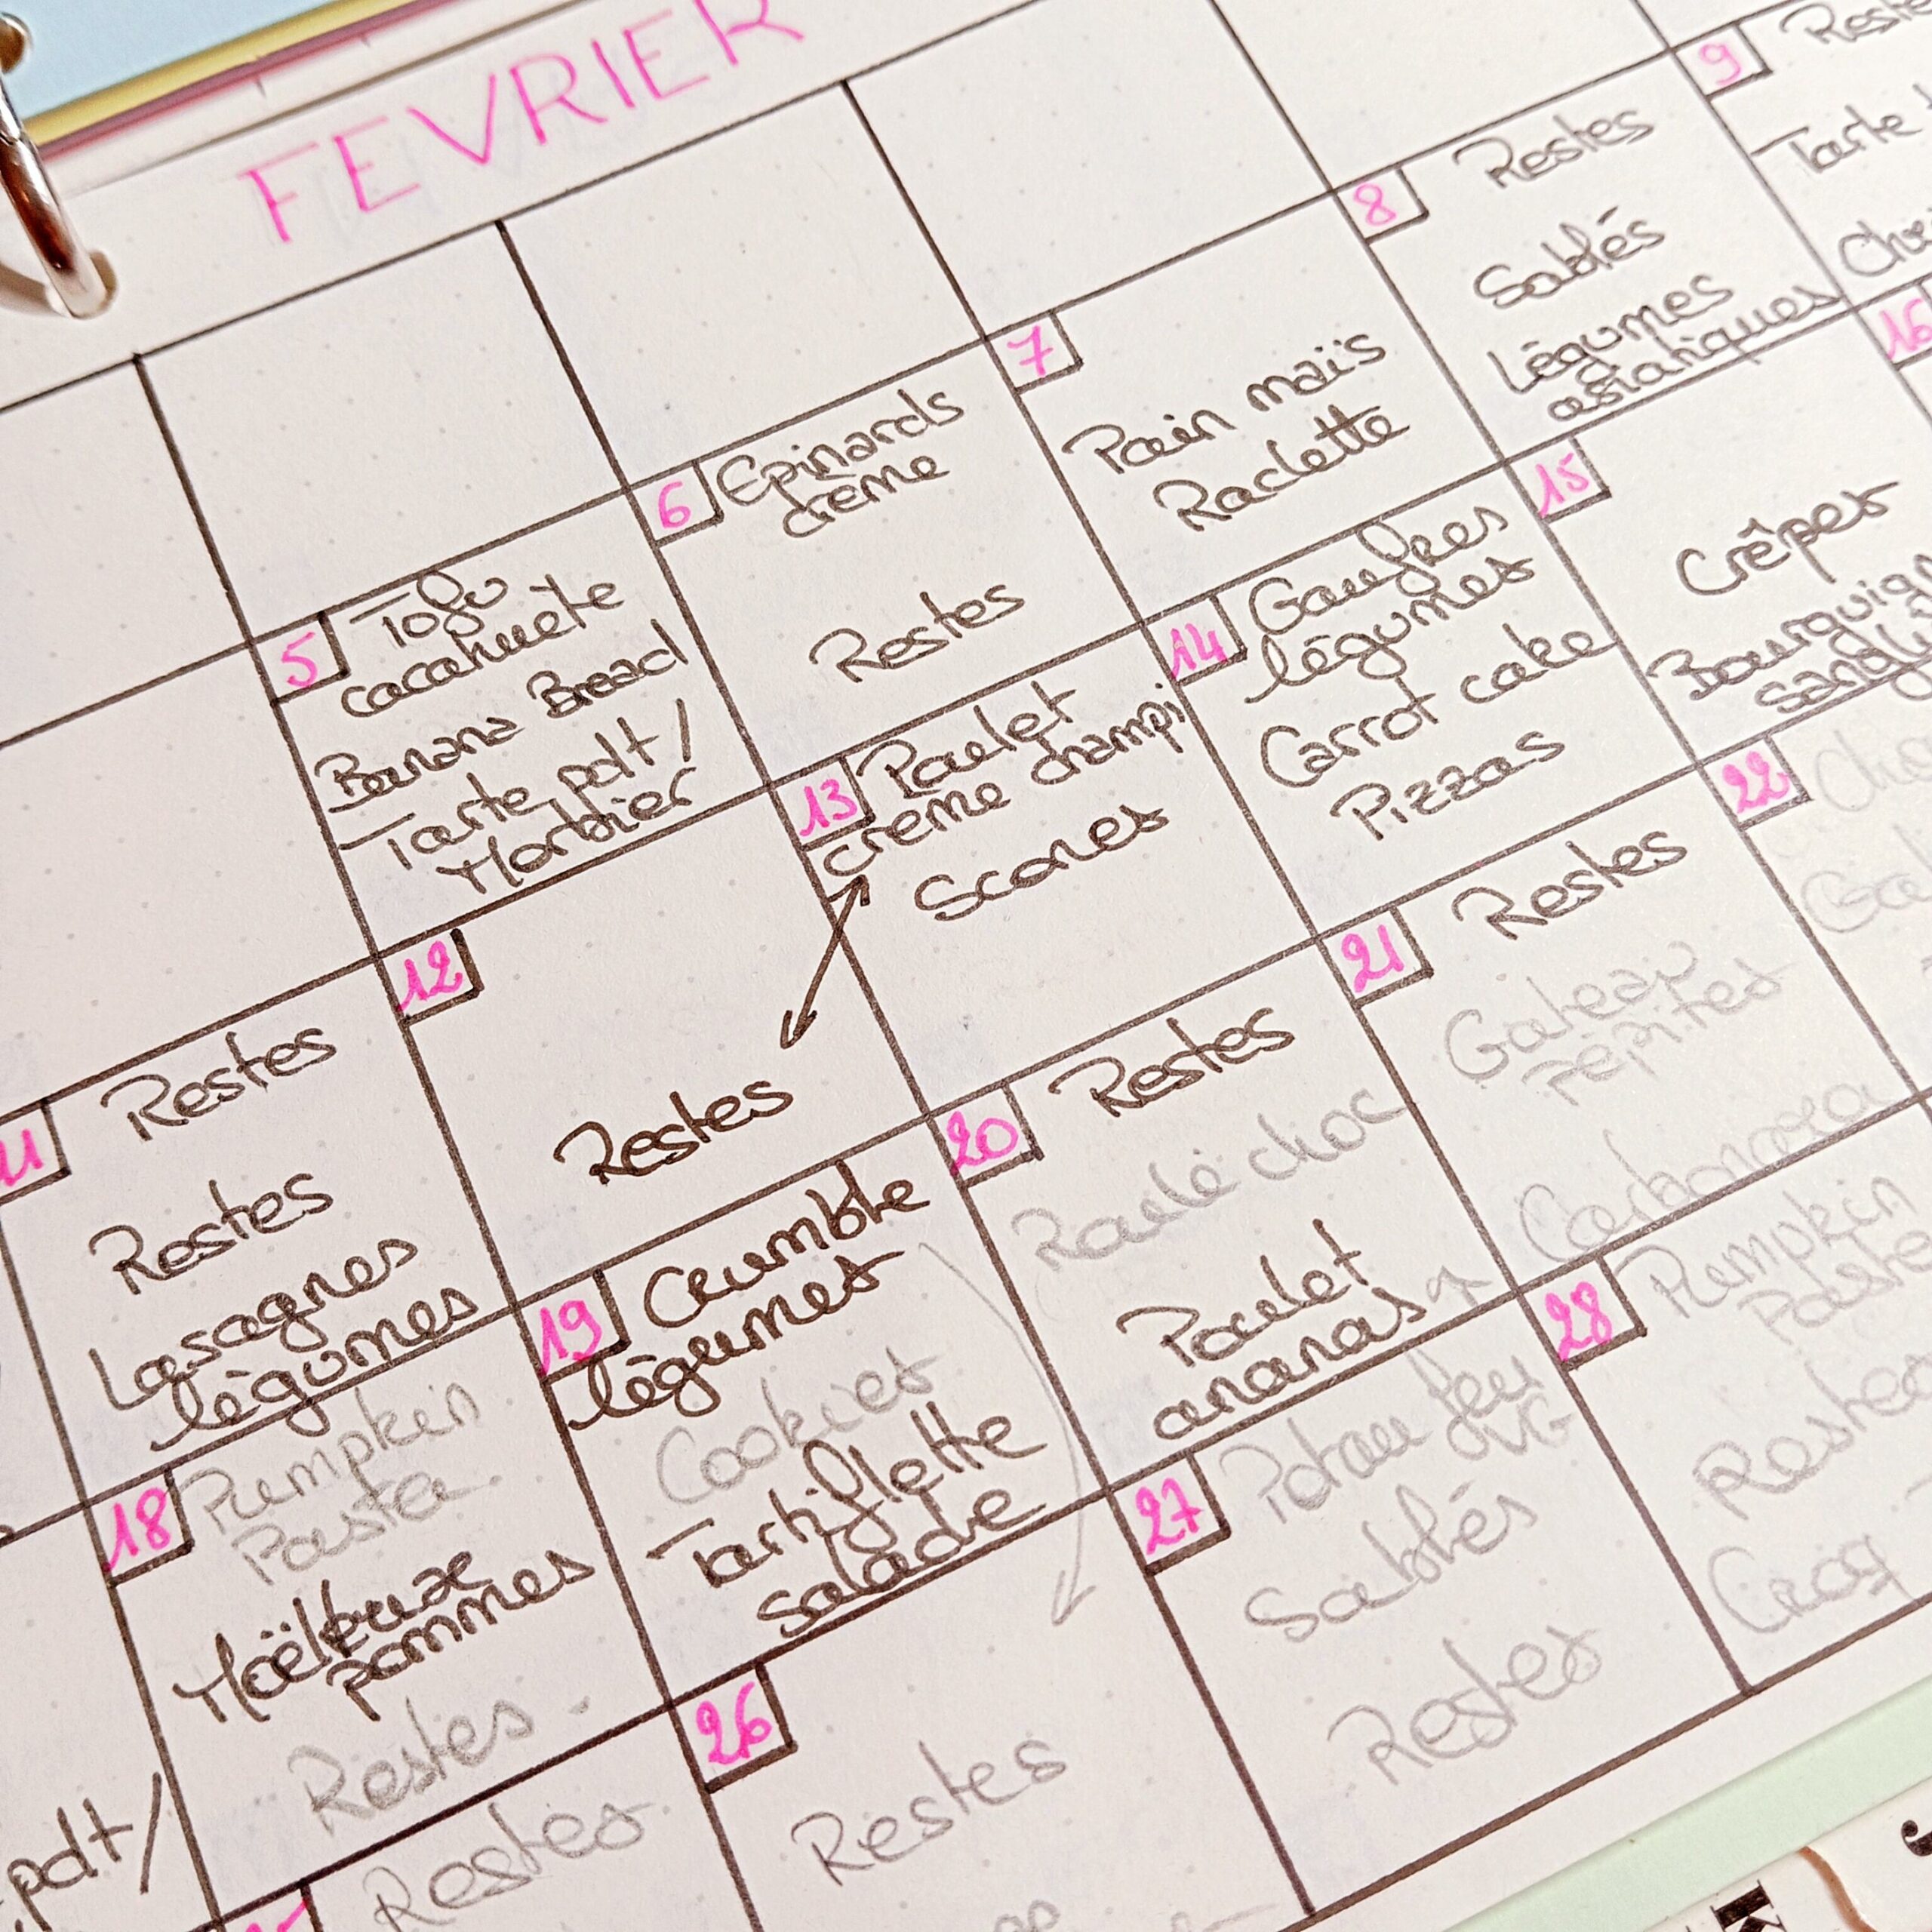 FEVRIER
5
Tofu
cacahuète
Banana Bread
Tarte pdt/
Morbier
6
Epinards
crème
Restes
7
Pain maïs
Raclette
8
Restes
Sablés
Légumes
asiatiques
9
Tarte
11
Restes
Restes
Lasagnes
légumes
12
Restes
13
Poulet
crème champi
Scones
14
Gaufres
légumes
Carrot cake
Pizzas
15
Crêpes
16
18
Pumpkin
Pasta
Moëlleux
pommes
Restes
19
Crumble
légumes
Cookies
Tartiflette
salade
20
Restes
Roulé choc
Poulet
ananas
21
Restes
Gateau
pépites
Carbonara
22
pdt/
Restes
26
Restes
27
Potau feu
VG
Sablés
Restes
28
Pumpkin
Restes
K